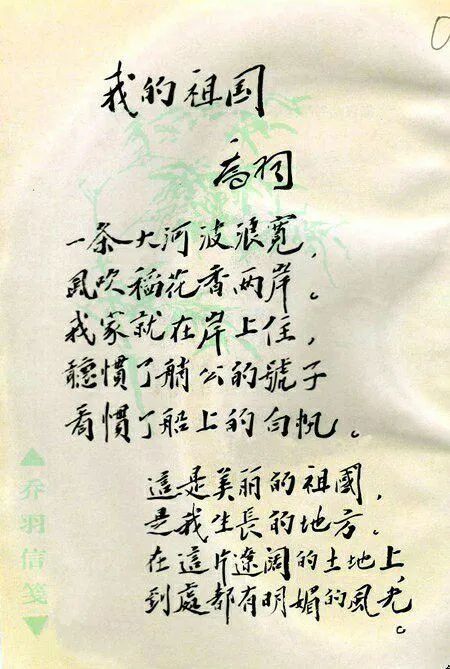 我的祖国
乔羽
一条大河波浪宽，
風吹稻花香两岸。
我家就在岸上住，
聽慣了艄公的號子
看慣了船上的白帆。
這是美丽的祖國，
是我生長的地方.
在這片遼闊的土地上，
到處都有明媚的風光。
乔羽信笺